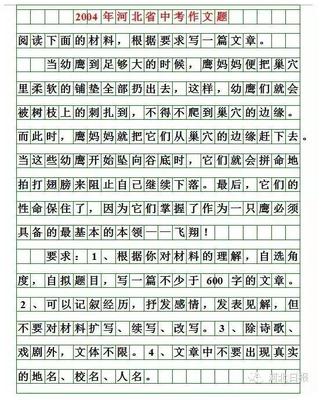 2004年河北省中考作文题
阅读下面的材料，根据要求写一篇文章。
当幼鹰到足够大的时候，鹰妈妈便把巢穴
里柔软的铺垫全部扔出去，这样，幼鹰们就会
被树枝上的刺扎到，不得不爬到巢穴的边缘。
而此时，鹰妈妈就把它们从巢穴的边缘赶下去。
当这些幼鹰开始坠向谷底时，它们就会拼命地
拍打翅膀来阻止自己继续下落。最后，它们的
性命保住了，因为它们掌握了作为一只鹰必须
具备的最基本的本领——飞翔！
要求：1、根据你对材料的理解，自选角
度，自拟题目，写一篇不少于600字的文章。
2、可以记叙经历，抒发感情，发表见解，但
不要对材料扩写、续写、改写。3、除诗歌、
戏剧外，文体不限。4、文章中不要出现真实
的地名、校名、人名。
河北日报